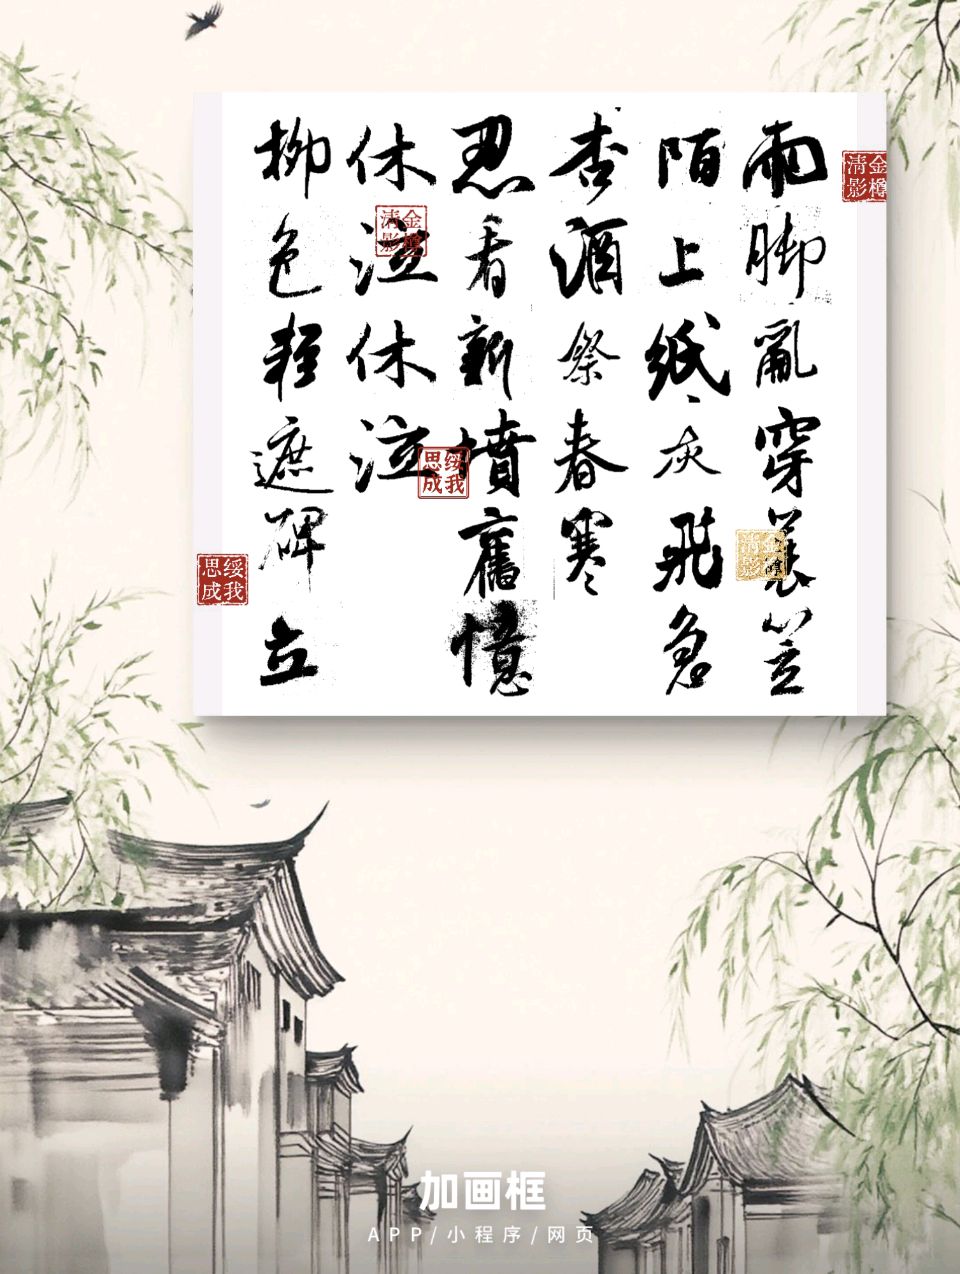 雨脚亂穿蓑笠
陌上紙灰飛急
杏酒祭春寒
忍看新墳舊憶
休泣
休泣
柳色輕遮碑立
金樽清影
金樽清影
綏我思成
綏我思成
金樽清影
加画框
APP/小程序/网页